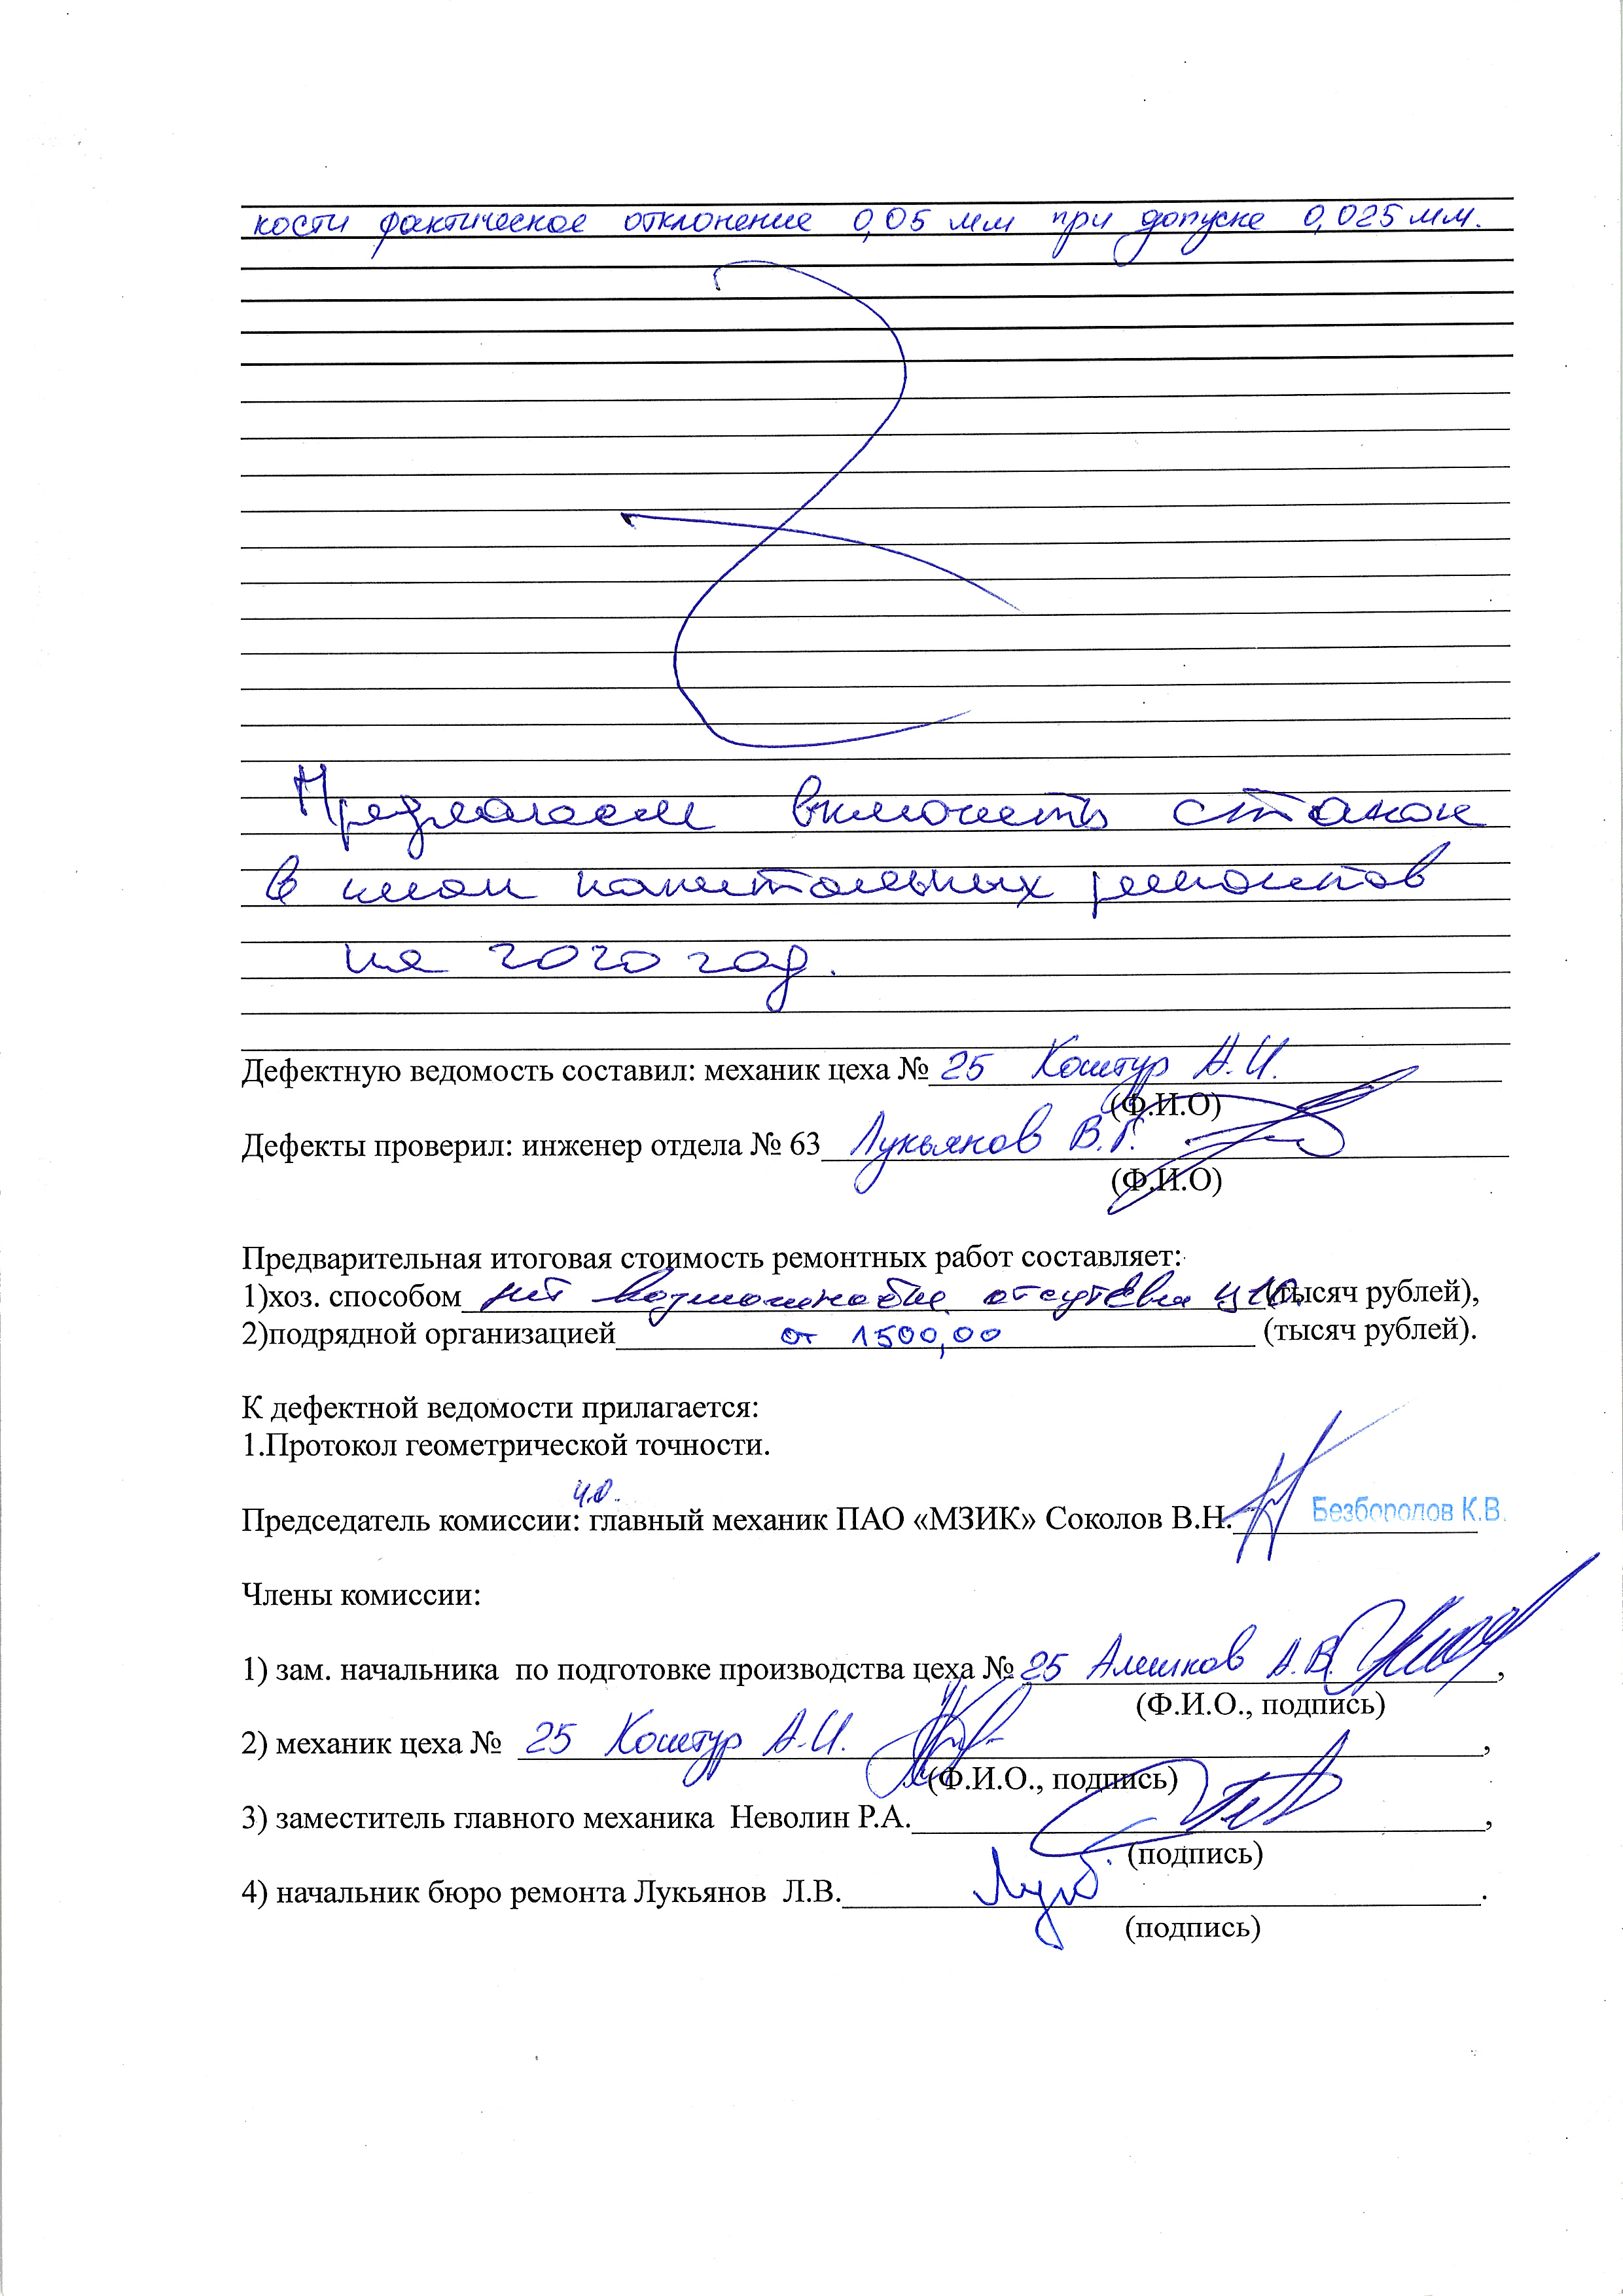 кости фактическое отклонение 0,05 мм при допуске 0,025 мм.
Предлагаем включить станок
в план капитальных ремонтов
на 2020 год.
Дефектную ведомость составил: механик цеха № 25 Коштур А.И.
(Ф.И.О)
Дефекты проверил: инженер отдела № 63 Лукьянов В.Г.
(Ф.И.О)
Предварительная итоговая стоимость ремонтных работ составляет:
1)хоз. способом нет возможности (тысяч рублей),
2)подрядной организацией от 1500,00 (тысяч рублей).
К дефектной ведомости прилагается:
1.Протокол геометрической точности.
и.о.
Председатель комиссии: главный механик ПАО «МЗИК» Соколов В.Н. Безбородов К.В.
Члены комиссии:
1) зам. начальника по подготовке производства цеха № 25 Алешков А.В.,
(Ф.И.О., подпись)
2) механик цеха № 25 Коштур А.И.,
(Ф.И.О., подпись)
3) заместитель главного механика Неволин Р.А.,
(подпись)
4) начальник бюро ремонта Лукьянов Л.В.
(подпись)